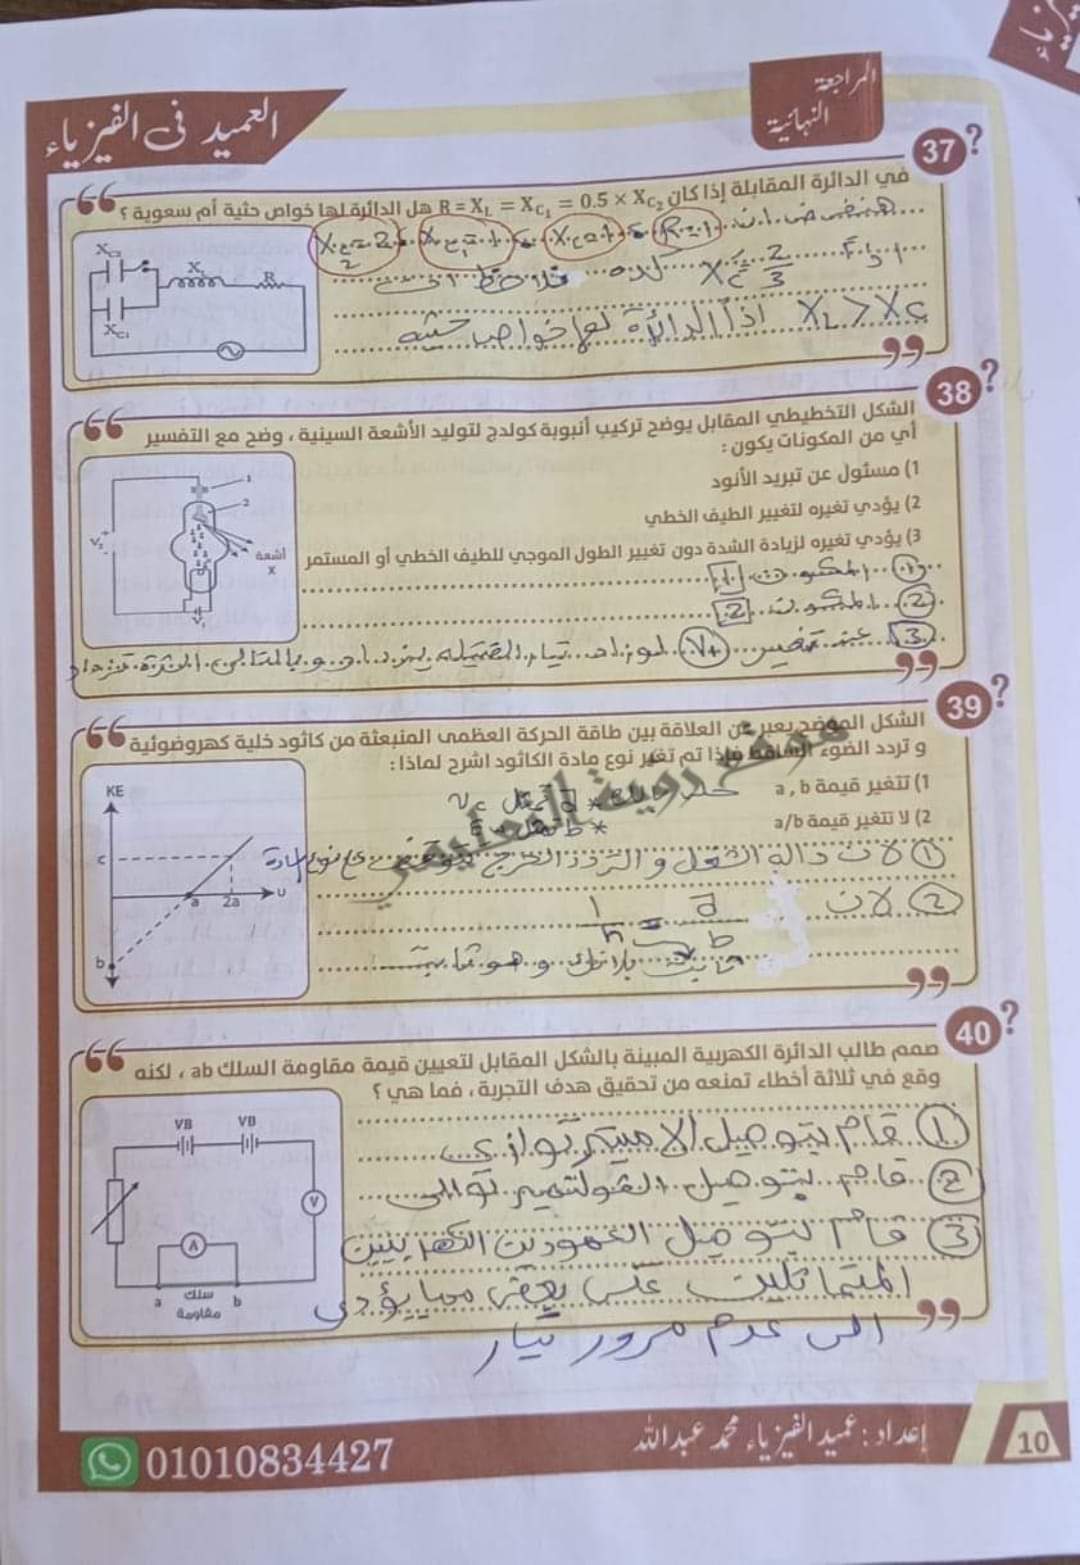 المراجعة
النهائية
العميد فى الفيزياء
37
في الدائرة المقابلة إذا كان R = XL = XC1 = 0.5 × XC2 هل الدائرة لها خواص حثية أم سعوية ؟
هنفرض ان R=1 XL=1 XC1=1 XC2=2
XC = 2/3
XL > XC اذاً الدائرة لها خواص حثيه
XC2
XL
R
XC1
38
الشكل التخطيطي المقابل يوضح تركيب أنبوبة كولدج لتوليد الأشعة السينية ، وضح مع التفسير
أي من المكونات يكون :
1) مسئول عن تبريد الأنود
2) يؤدي تغيره لتغيير الطيف الخطي
3) يؤدي تغيره لزيادة الشدة دون تغيير الطول الموجي للطيف الخطي أو المستمر
1 المكون 1
2 المكون 2
3 عند تغير V1 لو زاد تيار الفتيله يزداد وبالتالى الشدة تزداد
1
2
V2
أشعة
X
V1
39
الشكل الموضح يعبر عن العلاقة بين طاقة الحركة العظمى المنبعثة من كاثود خلية كهروضوئية
و تردد الضوء الساقط فإذا تم تغير نوع مادة الكاثود اشرح لماذا :
1) تتغير قيمة a , b
2) لا تتغير قيمة a/b
موقع رؤية التعليمي
* a تمثل νc
* b تمثل
1 لان داله الشغل و التردد الحرج يتوقف على نوع المادة
2 لان a/b = 1/h
ثابت بلانك وهو ثابت
KE
c
a
2a
υ
b
40
صمم طالب الدائرة الكهربية المبينة بالشكل المقابل لتعيين قيمة مقاومة السلك ab ، لكنه
وقع في ثلاثة أخطاء تمنعه من تحقيق هدف التجربة ، فما هي ؟
1 قام بتوصيل الاميتر توازي
2 قام بتوصيل الفولتميتر توالى
3 قام بتوصيل العمودين الكهربيين
المتماثلين عكس بعض مما يؤدى
الى عدم مرور تيار
VB
VB
V
A
a
سلك
مقاومة
b
01010834427
إعداد : عميد الفيزياء محمد عبدالله
10